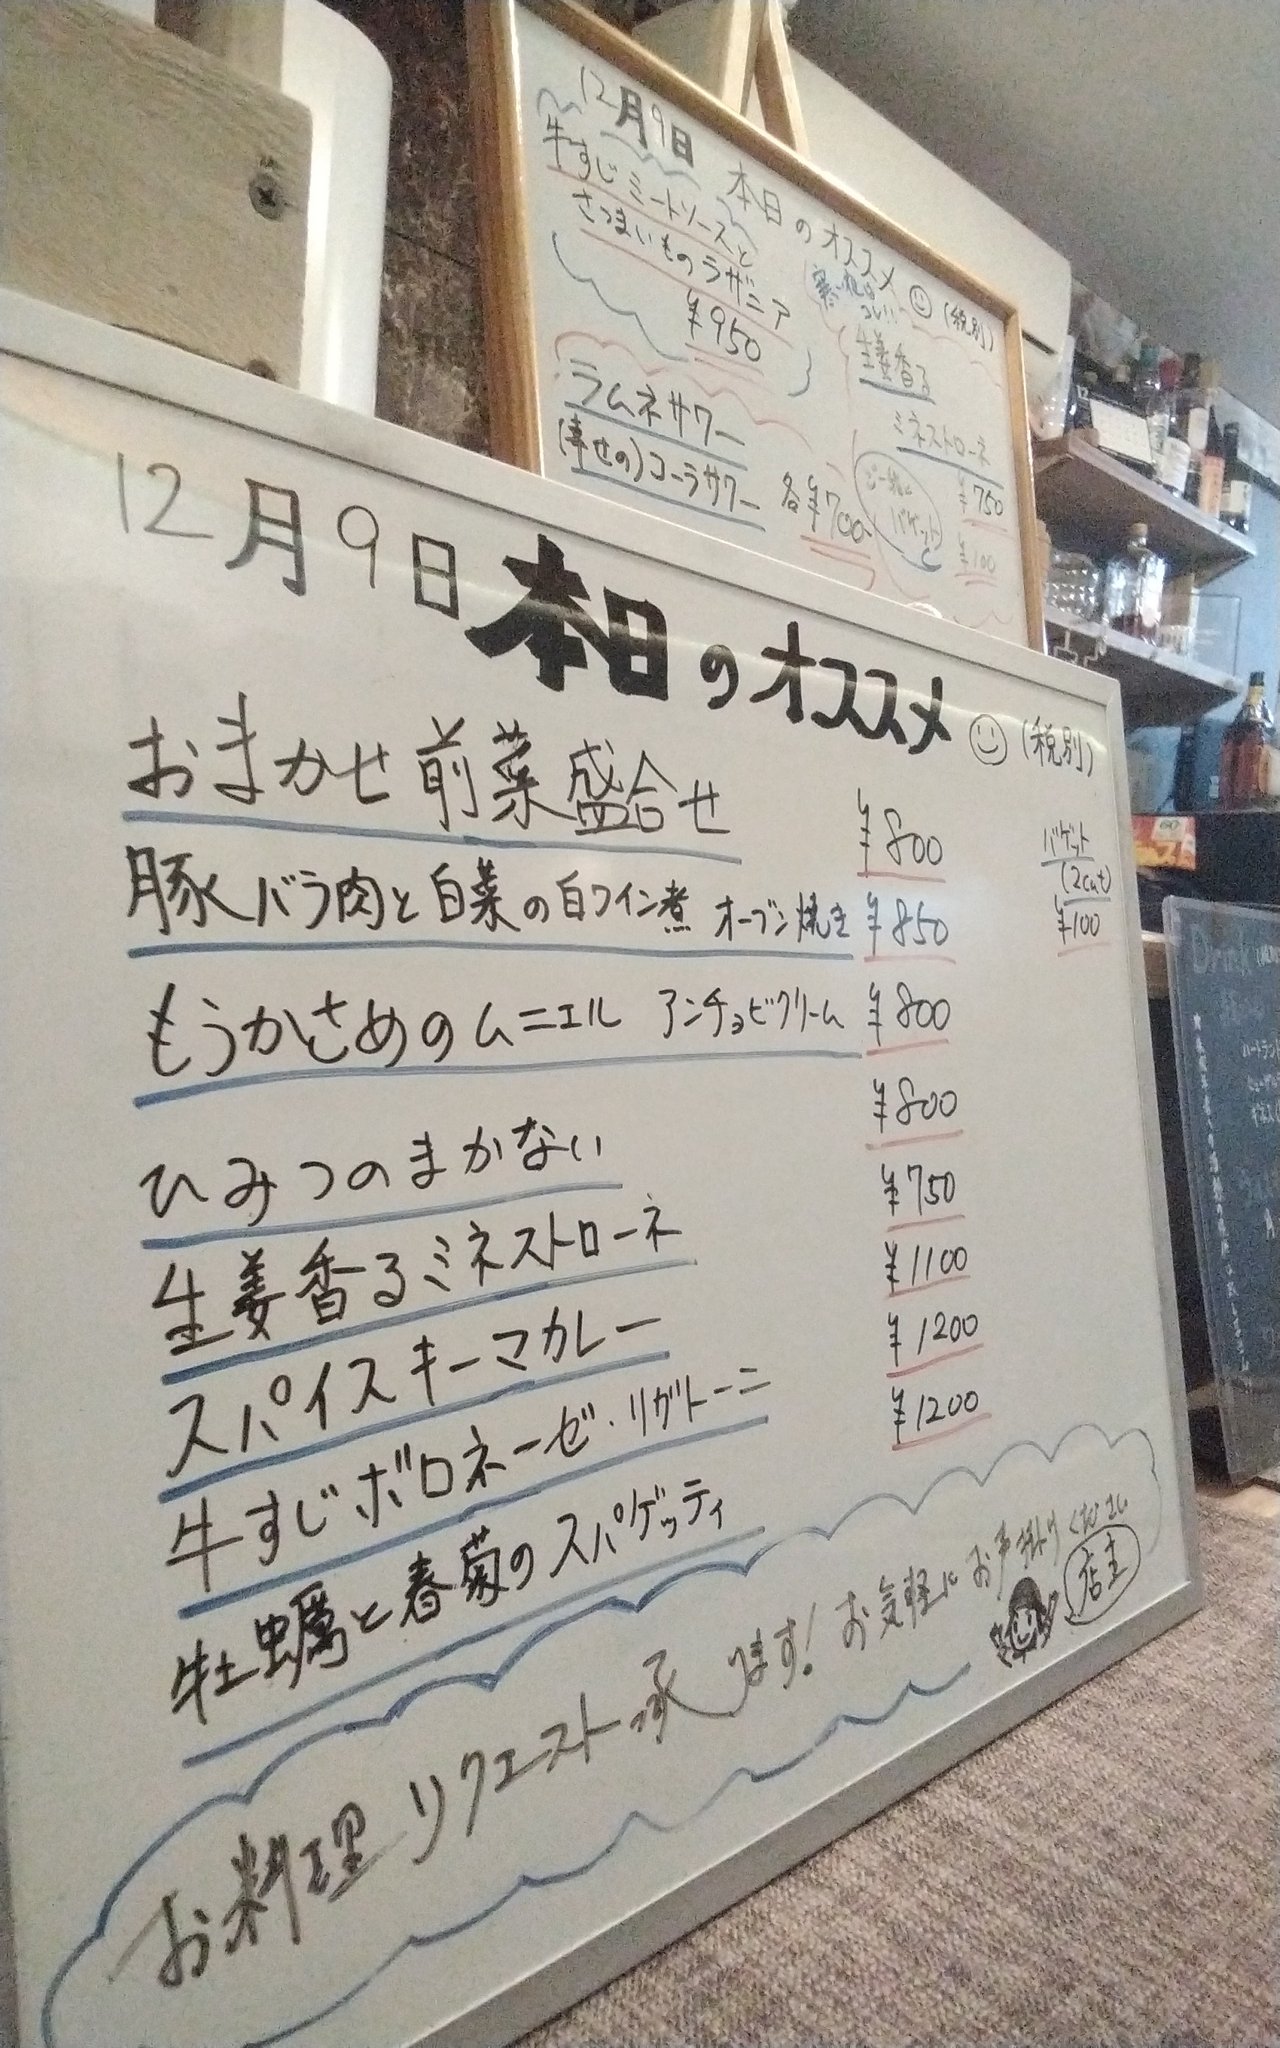 12月9日 本日のオススメ (税別)
牛すじミートソースと
さつまいものラザニア
¥950
寒い夜は
コレ!!
生姜香る
ミネストローネ
¥750
ご一緒に
バゲット
¥100
ラムネサワー
(幸せの)コーラサワー
各¥700-
12月9日 本日のオススメ (税別)
おまかせ前菜盛合せ ¥800
豚バラ肉と白菜の白ワイン煮 オーブン焼き ¥850
もうかさめのムニエル アンチョビクリーム ¥800
ひみつのまかない ¥800
生姜香るミネストローネ ¥750
スパイスキーマカレー ¥1100
牛すじボロネーゼ・リガトーニ ¥1200
牡蠣と春菊のスパゲッティ ¥1200
バゲット
(2cut)
¥100
お料理リクエスト承ります! お気軽にお声掛けください
店主
Drink